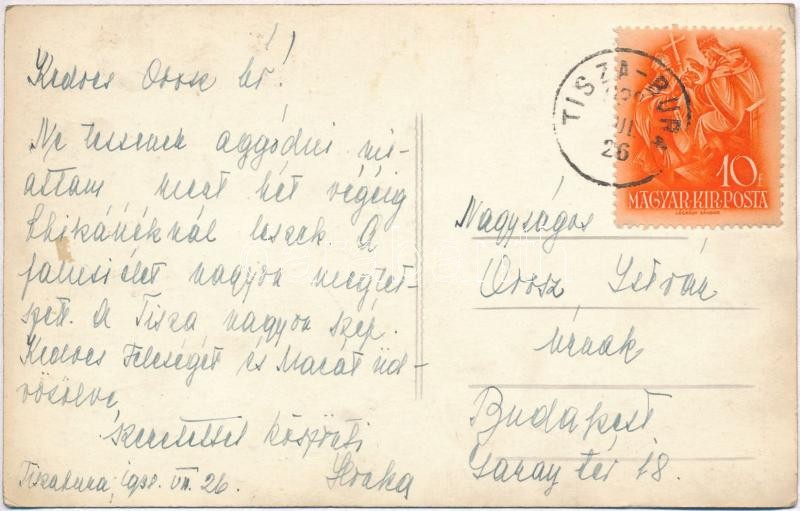 Kedves Orosz bá!
Ne tessenek aggódni mi-
attam mert hét végéig
leszek A
falusi élet nagyon megtet-
szett. A Tisza nagyon szép.
Kedves Feleségét és Macát üd-
vözölve
szeretettel köszönti
Tiszabura, 1938. VII. 26.
TISZA-BURA
26
10f
MAGYAR·KIR·POSTA
LÉGRÁDY SÁNDOR
Nagyságos
Orosz István
úrnak
Budapest
Garay tér 18.